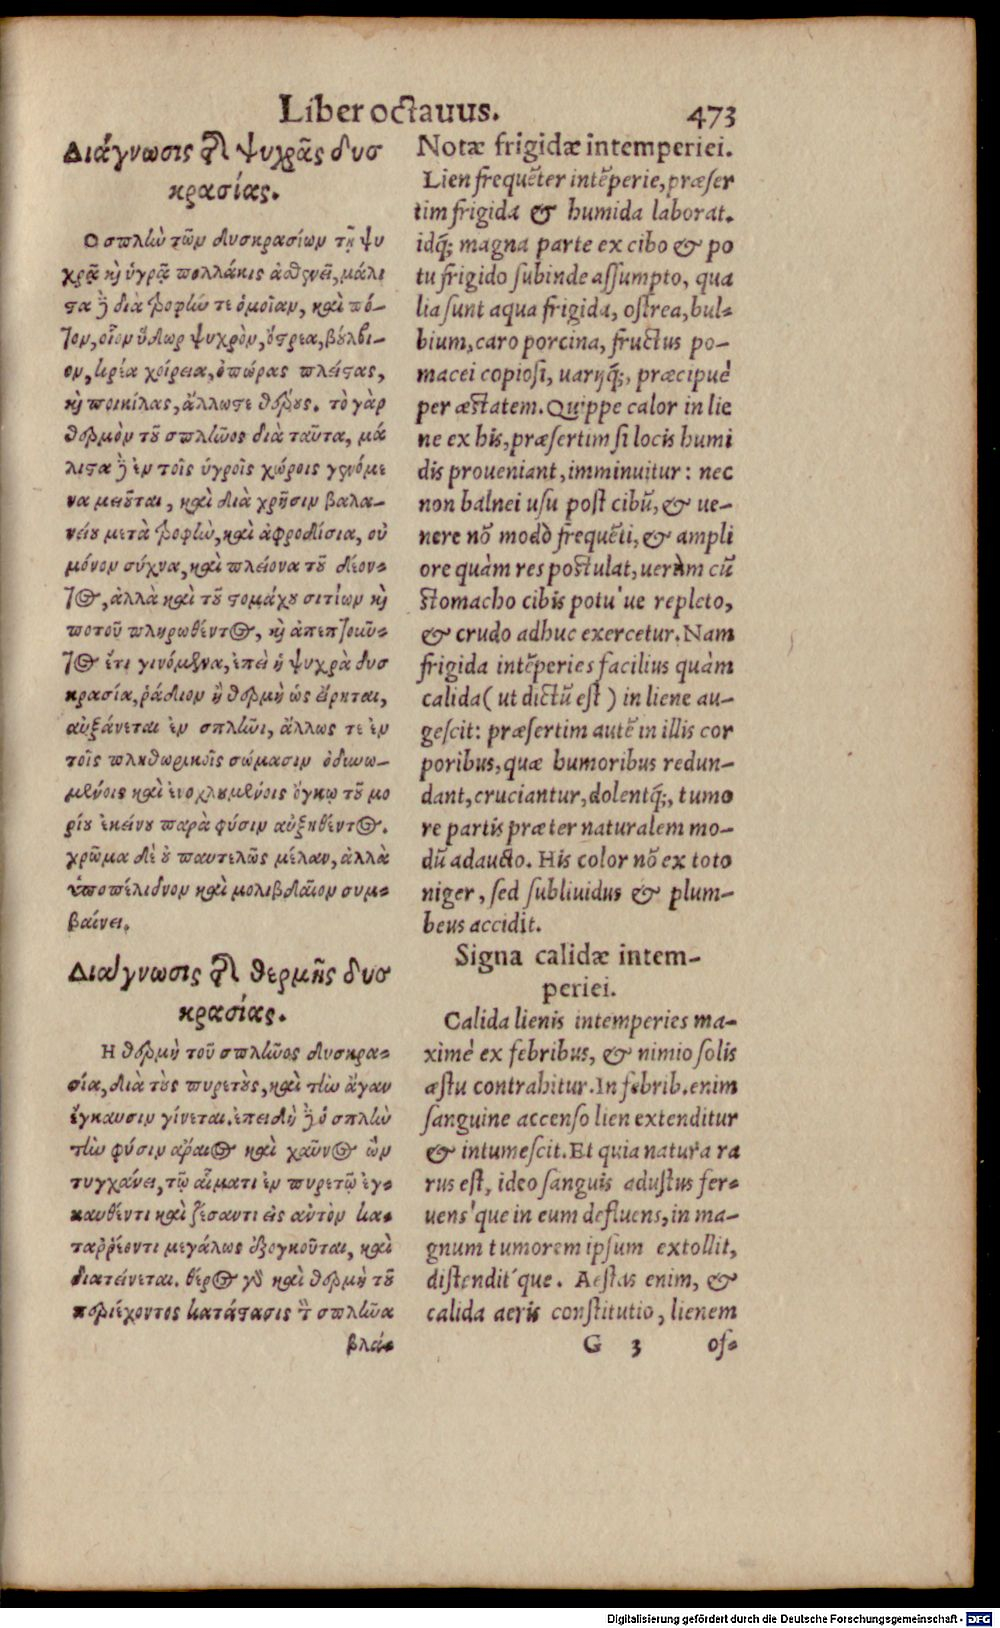 Liber octauus. 473
Διάγνωσις τῆς ψυχρᾶς δυσ
κρασίας.
Ο σπλὴν τῶν δυσκρασίων τῇ ψυ
χρᾷ κὴ ὑγρᾷ πολλάκις ἀσθενεῖ, μάλι
στα ἢ διὰ ῥοφὴν τε ὁμοῖαν, καὶ πό-
τον, οἷον ὕδωρ ψυχρὸν, ὄστρεα, βύλβι-
ον, κρέα χοίρεια, ὀπώρας πλείστας,
κὴ ποικίλας, ἄλλωστε θέρους. τὸ γὰρ
θερμὸν τοῦ σπλῆνος διὰ ταῦτα, μά
λιστα ἢ ἐν τοῖς ὑγροῖς χώροις γενόμε
να μειῦται, καὶ διὰ χρῆσιν βαλα-
νείου μετὰ ῥοφὴν, καὶ ἀφροδίσια, οὐ
μόνον σύχνα, καὶ πλείονα τοῦ δέον-
τος, ἀλλὰ καὶ τοῦ στομάχου σιτίων κὴ
ποτοῦ πληρωθέντος, κὴ ἀπεπτοιοῦν-
τος ἔτι γινόμενα, ἐπεὶ ἡ ψυχρὰ δυσ
κρασία, ῥάδιον ἢ θερμὴ ὡς εἴρηται,
αὐξάνεται ἐν σπλῆνι, ἄλλως τε ἐν
τοῖς πληθωρικοῖς σώμασιν ὀδυνω-
μένοις καὶ ἐνοχλουμένοις ὄγκῳ τοῦ μο
ρίου ἐκείνου παρὰ φύσιν αὐξηθέντος.
χρῶμα δὲ οὐ παντελῶς μέλαν, ἀλλὰ
ὑποπέλιδνον καὶ μολιβδαῖον συμ-
βαίνει.
Διάγνωσις τῆς θερμῆς δυσ
κρασίας.
Η θερμὴ τοῦ σπλῆνος δυσκρα-
σία, διὰ τοὺς πυρετοὺς, καὶ τὴν ἄγαν
ἔγκαυσιν γίνεται. ἐπειδὴ ἢ ὁ σπλὴν
τὴν φύσιν ἀραιὸς καὶ χαῦνος ὢν
τυγχάνει, τῷ αἵματι ἐν πυρετῷ ἐγ-
καυθέντι καὶ ζέσαντι εἰς αὐτὸν κα-
ταῤῥέοντι μεγάλως ἐξογκοῦται, καὶ
διατείνεται. θέρος γὸ καὶ θερμὴ τοῦ
περιέχοντος κατάστασις τὸν σπλῆνα
βλά-
Notæ frigidæ intemperiei.
Lien frequẽter intẽperie, præser
tim frigida & humida laborat.
idq́; magna parte ex cibo & po
tu frigido subinde assumpto, qua
lia sunt aqua frigida, ostrea, bul-
bium, caro porcina, fructus po-
macei copiosi, uarijq́;, præcipuè
per æstatem. Quippe calor in lie
ne ex his, præsertim si locis humi
dis proueniant, imminuitur: nec
non balnei usu post cibũ, & ue-
nere nõ modò frequẽti, & ampli
ore quàm res postulat, uerùm cũ
stomacho cibis potu'ue repleto,
& crudo adhuc exercetur. Nam
frigida intẽperies facilius quàm
calida (ut dictũ est) in liene au-
gescit: præsertim autẽ in illis cor
poribus, quæ humoribus redun-
dant, cruciantur, dolentq́;, tumo
re partis præter naturalem mo-
dũ adaucto. His color nõ ex toto
niger, sed subliuidus & plum-
beus accidit.
Signa calidæ intem-
periei.
Calida lienis intemperies ma-
ximè ex febribus, & nimio solis
æstu contrahitur. In febrib. enim
sanguine accenso lien extenditur
& intumescit. Et quia natura ra
rus est, ideo sanguis adustus fer-
uens'que in eum defluens, in ma-
gnum tumorem ipsum extollit,
distendit'que. Aestas enim, &
calida aeris constitutio, lienem
G 3 of-
Digitalisierung gefördert durch die Deutsche Forschungsgemeinschaft - DFG